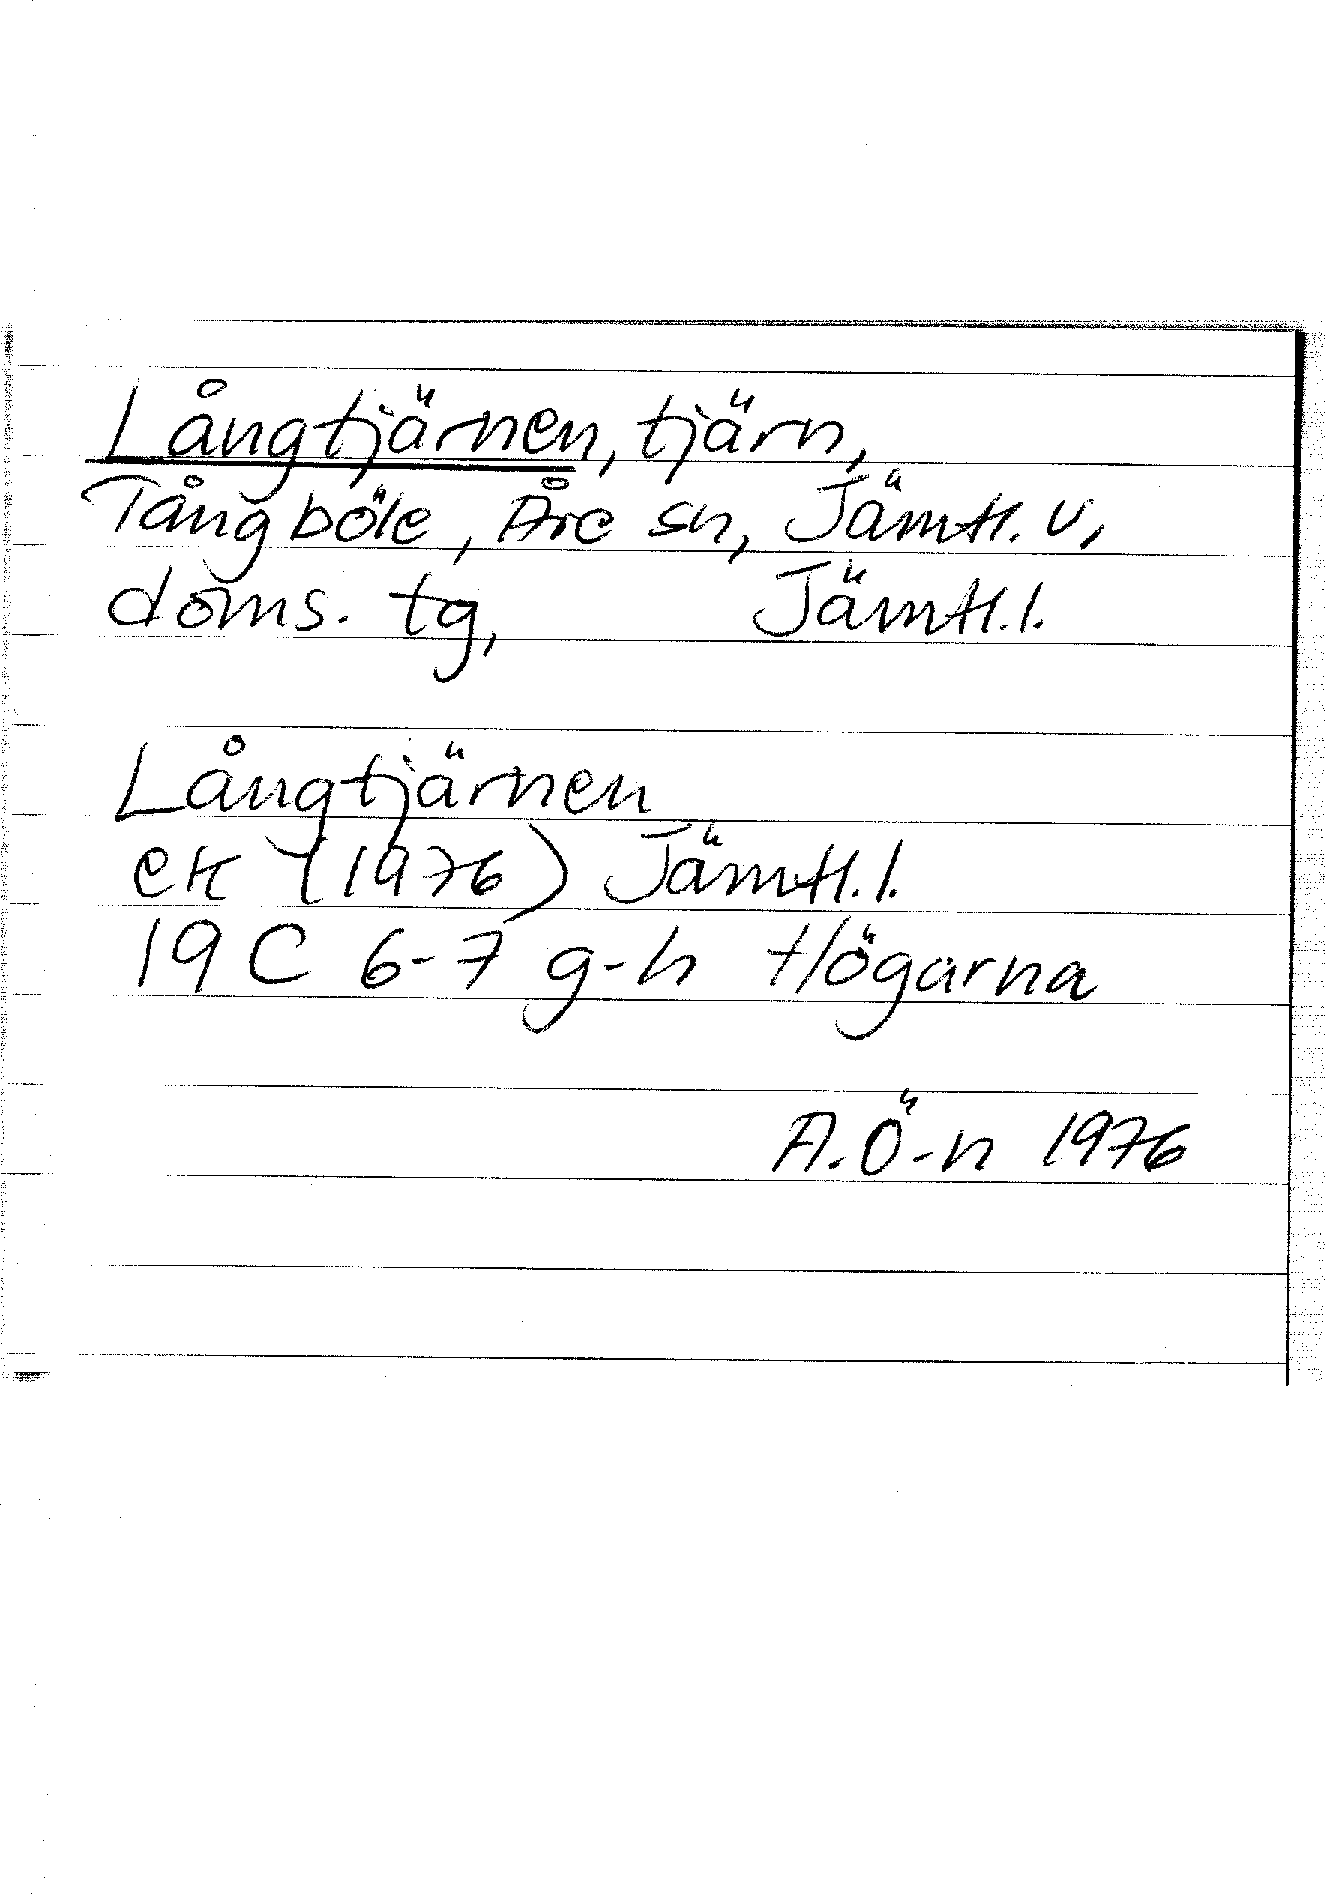 Långtjärnen, tjärn,
Tångböle, Åre sn, Jämtl. v,
doms. tg, Jämtl.l.
Långtjärnen
ek (1976) Jämtl.l.
19 C 6-7 g-h Högarna
A.Ö-n 1976